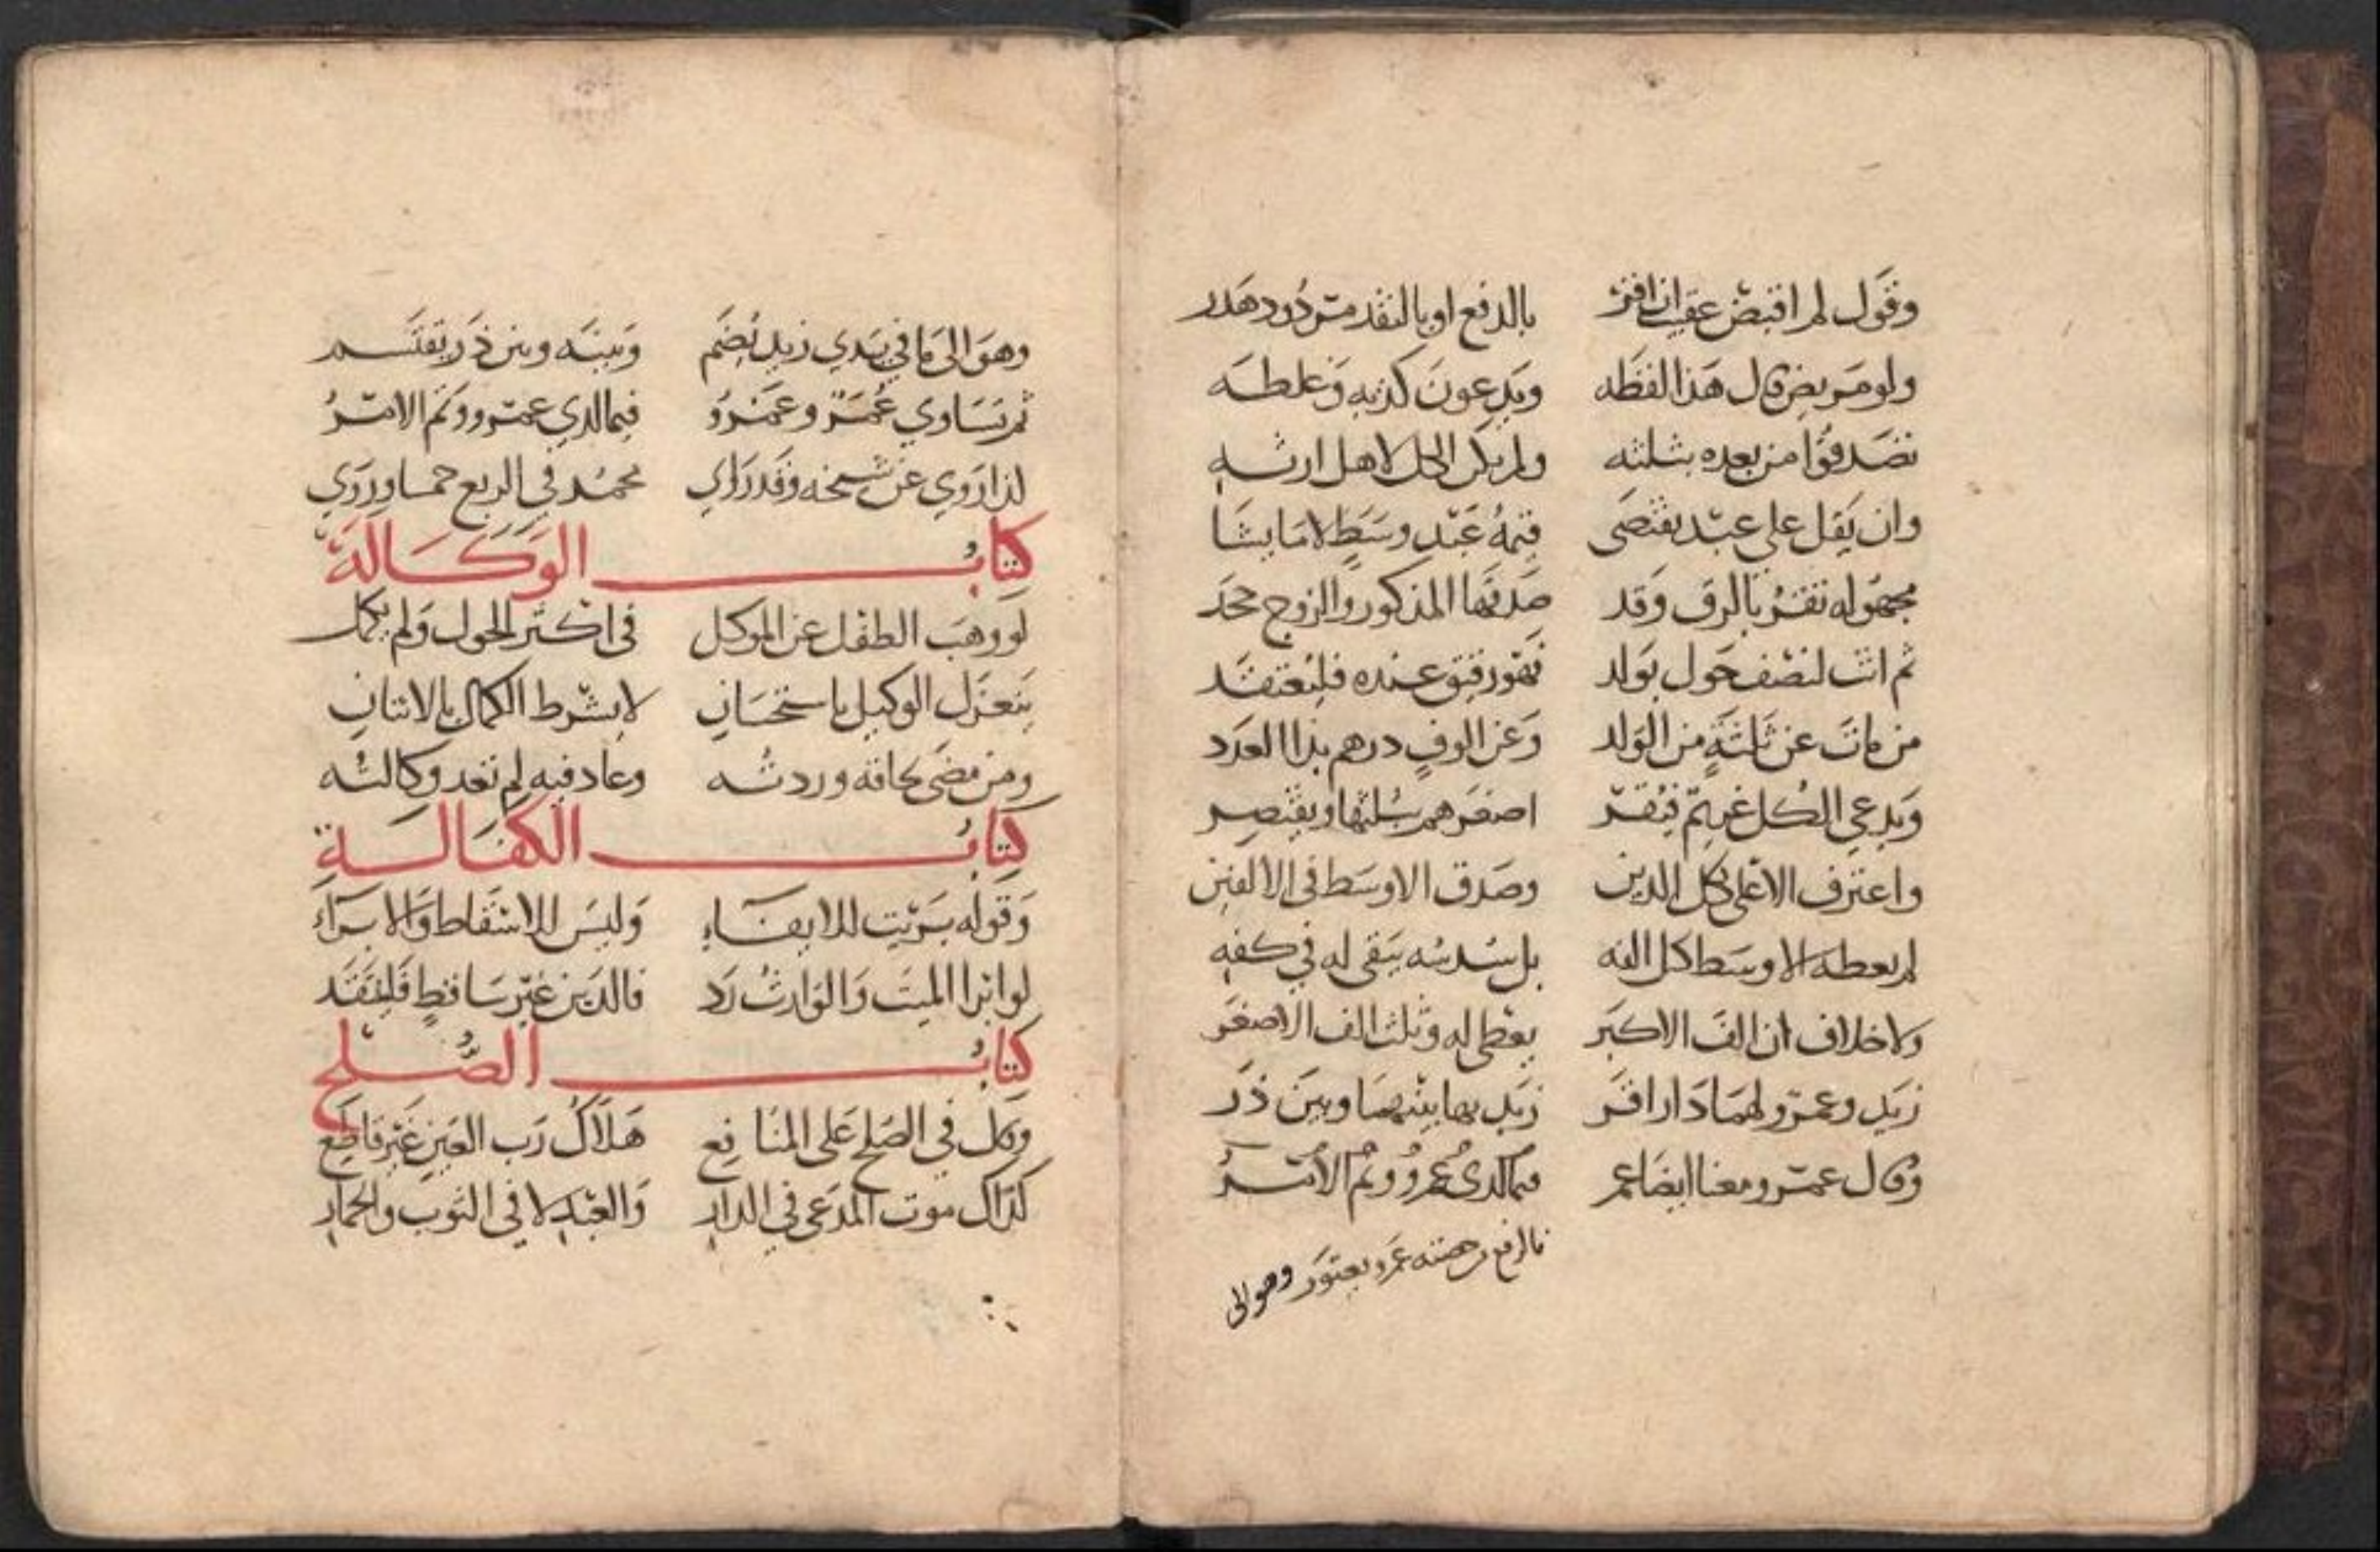 وقول لم اقبض عقيب ان اقر بالدفع او بالنقد مردود هدر
ولو مريض قال هذا لفظه ويدعون كذبه وغلطه
تصدقوا من بعده بثلثه ولم يكن الحل لاهل ارثه
وان يقل علي عبد يقتضى قيمة عبد وسط لا ما يشا
مجهوله تقر بالرق وقد صدقها المذكور والزوج جحد
ثم اتت لنصف حول بولد فهو رقيق عنده فليعتقد
من مات عن ثلثة من الولد وعن الوف درهم بذا العدد
ويدعي الكل غريم فيقر اصغرهم بثلثها ويقتصر
واعترف الاعلى بكل الدين وصدق الاوسط في الالفين
لم يعطه الاوسط كل الفه بل سدسه يبقى له في كفه
ولا خلاف ان الف الاكبر يعطى له وثلث الف الاصغر
زيد وعمرو لهما دار اقر زيد بها بينهما وبين ذر
وقال عمرو معنا ايضا عمر فما لدى عمرو وثم الامر
عمرو وهو الى
وهو الى ما في يدي زيد يضم وبينه وبين ذر يقتسم
ثم تساوي عمر وعمرو فيما لدي عمرو وثم الامر
لذا روي عن شيخه وقد راي محمد في الربع خمسا وروي
كتاب الوكالة
لو وهب الطفل عن الموكل في اكثر الحول ولم يكمل
ينعزل الوكيل باستحسان لا بشرط الكمال بالاتيان
ومن مضى لحاقه وردته وعاد فيه لم تعد وكالته
كتاب الكفالة
وقوله بريت للايفاء وليس للاسقاط والابراء
لو ابرا الميت والوارث رد فالدين غير ساقط فليفتقد
كتاب الصلح
وقال في الصلح على المنافع هلاك رب العين غير قاطع
كذاك موت المدعي في الدار والعبد لا في الثوب والحمار